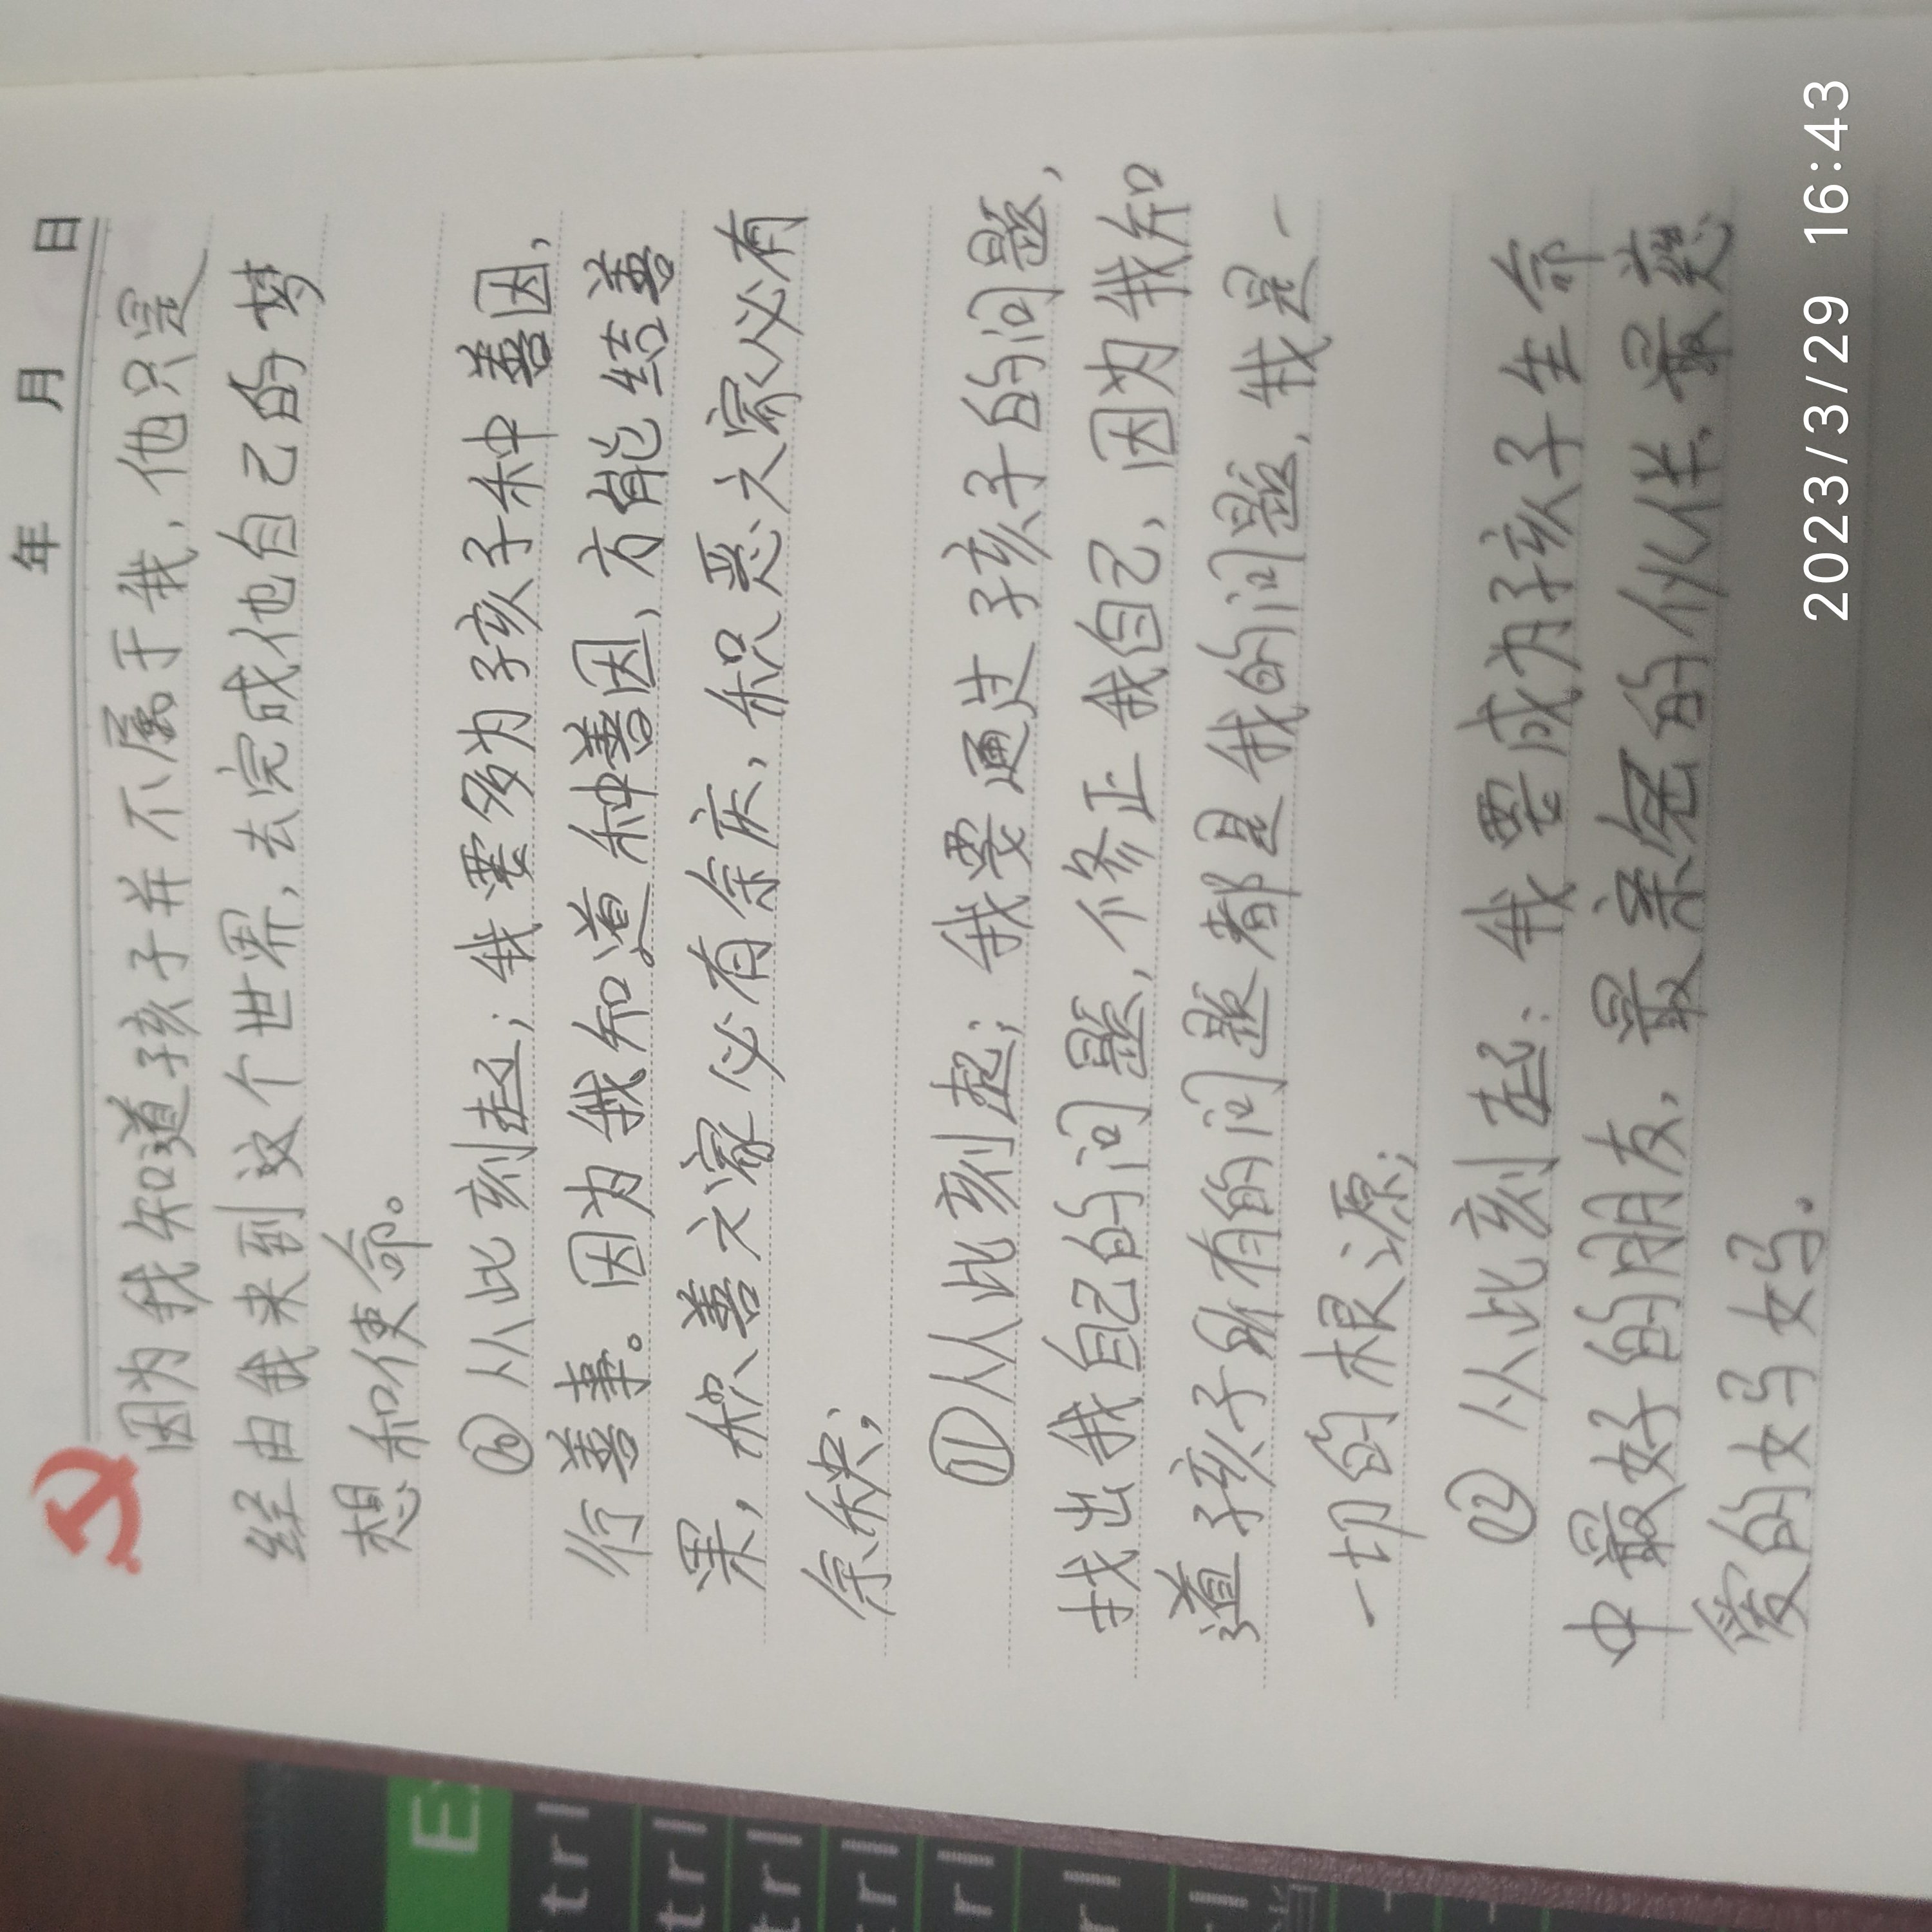 年 月 日
因为我知道孩子并不属于我,他只是
经由我来到这个世界,去完成他自己的梦
想和使命。
⑩从此刻起;我要多为孩子种善因,
行善事。因为我知道种善因,方能结善
果,积善之家必有余庆,积恶之家必有
余殃;
⑪从此刻起;我要通过孩子的问题,
找出我自己的问题,修正我自己,因为我知
道孩子所有的问题都是我的问题,我是一
一切的根源;
⑫从此刻起:我要成为孩子生命
中最好的朋友,最亲密的伙伴、最慈
爱的妈妈。
2023/3/29 16:43
trl
trl
trl
trl